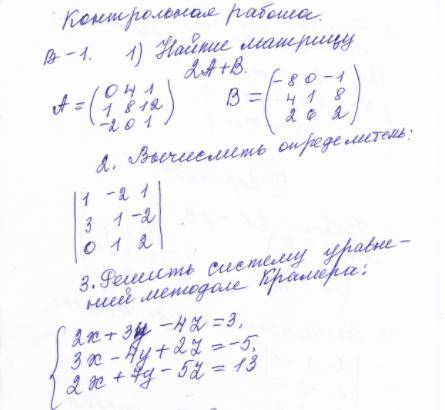 Контрольная работа.
В-1. 1) Найти матрицу
2A+B.
A = (0 4 1
1 8 12
-2 0 1)
B = (-8 0 -1
4 1 8
2 0 2)
2. Вычислить определитель:
|1 -2 1|
|3 1 -2|
|0 1 2|
3. Решить систему уравне-
ний методом Крамера:
{2x + 3y - 4z = 3,
3x - 4y + 2z = -5,
2x + 7y - 5z = 13